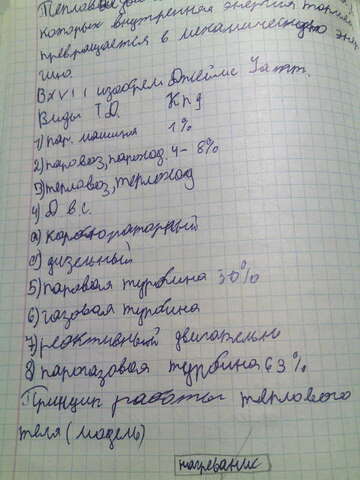 Тепловые
которых внутренняя энергия топлива
превращается в механическую энер
гию.
В XVII изобрел Джеймс Уатт.
Виды Т.Д. Кпд
1) пар. машина 1%
2) паровоз, пароход 4-8%
3) тепловоз, теплоход
4) Д.в.с.
а) карбюраторный
б) дизельный
5) паровая турбина 30%
6) газовая турбина
7) реактивный двигатель
8) парогазовая турбина 63%
Принцип работы теплового
теля (модель)
нагреваник